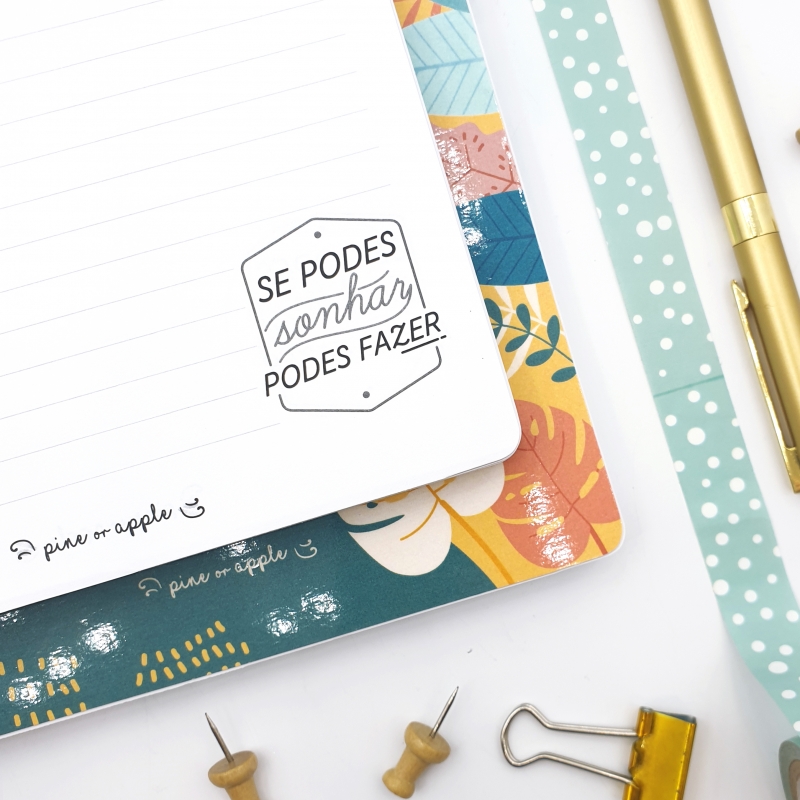 SE PODES
sonhar
PODES FAZER
pine or apple
pine or apple